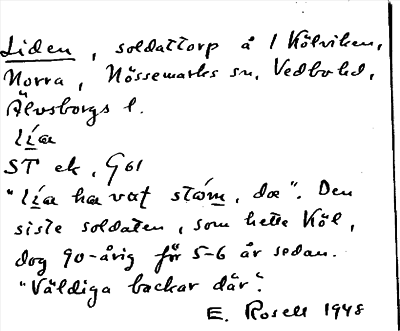 Liden, soldattorp å 1 Kölviken,
Norra, Nössemarks sn, Vedbo hd,
Älvsborgs l.
lía
ST ek, G61
"lía ha vat stóm, dæ". Den
siste soldaten, som hette Köl,
dog 90-årig för 5-6 år sedan.
"Väldiga backar där".
E. Rosell 1948